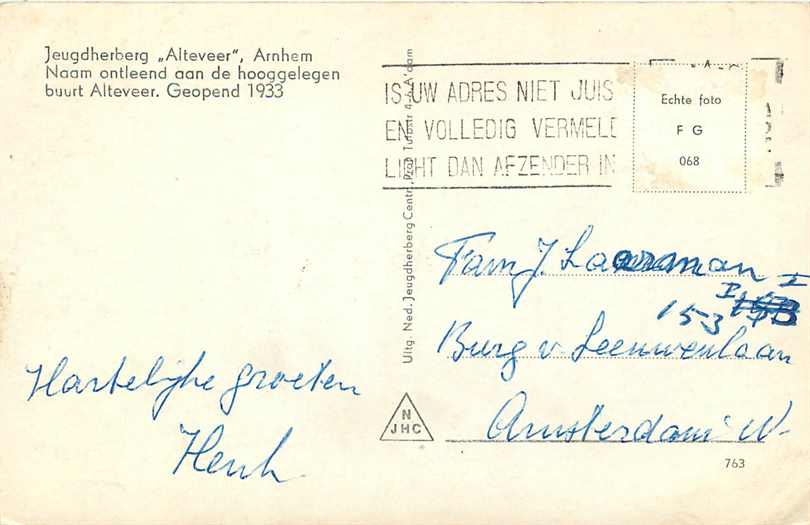 Jeugdherberg „Alteveer”, Arnhem
Naam ontleend aan de hooggelegen
buurt Alteveer. Geopend 1933
IS UW ADRES NIET JUIS
EN VOLLEDIG VERMELD
LICHT DAN AFZENDER IN
Echte foto
F G
068
Uitg. Ned. Jeugdherberg Centr., Prof. Tulpstr 4-6, A'dam
Fam. J. Laarman
153 I
Burg v. Leeuwenlaan
Amsterdam W-
Hartelijke groeten
Henk
N
JHC
763